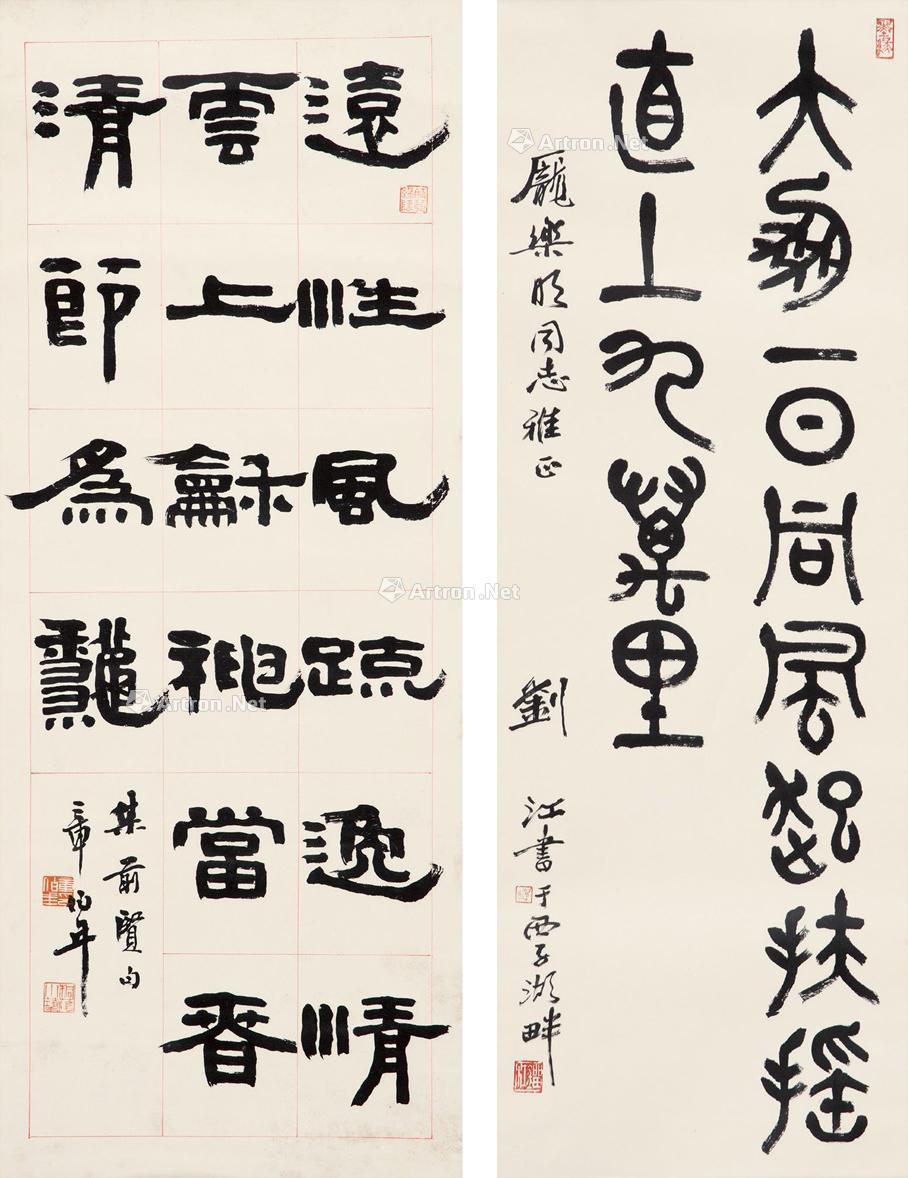 大鵬一日同風起扶搖
直上九萬里
龐樂明同志雅正 劉江書于西子湖畔
遠性風疏逸情
雲上龢神當春
清節爲龝
集前賢句
章伯年
Artron.Net
Artron.Net
Artron.Net